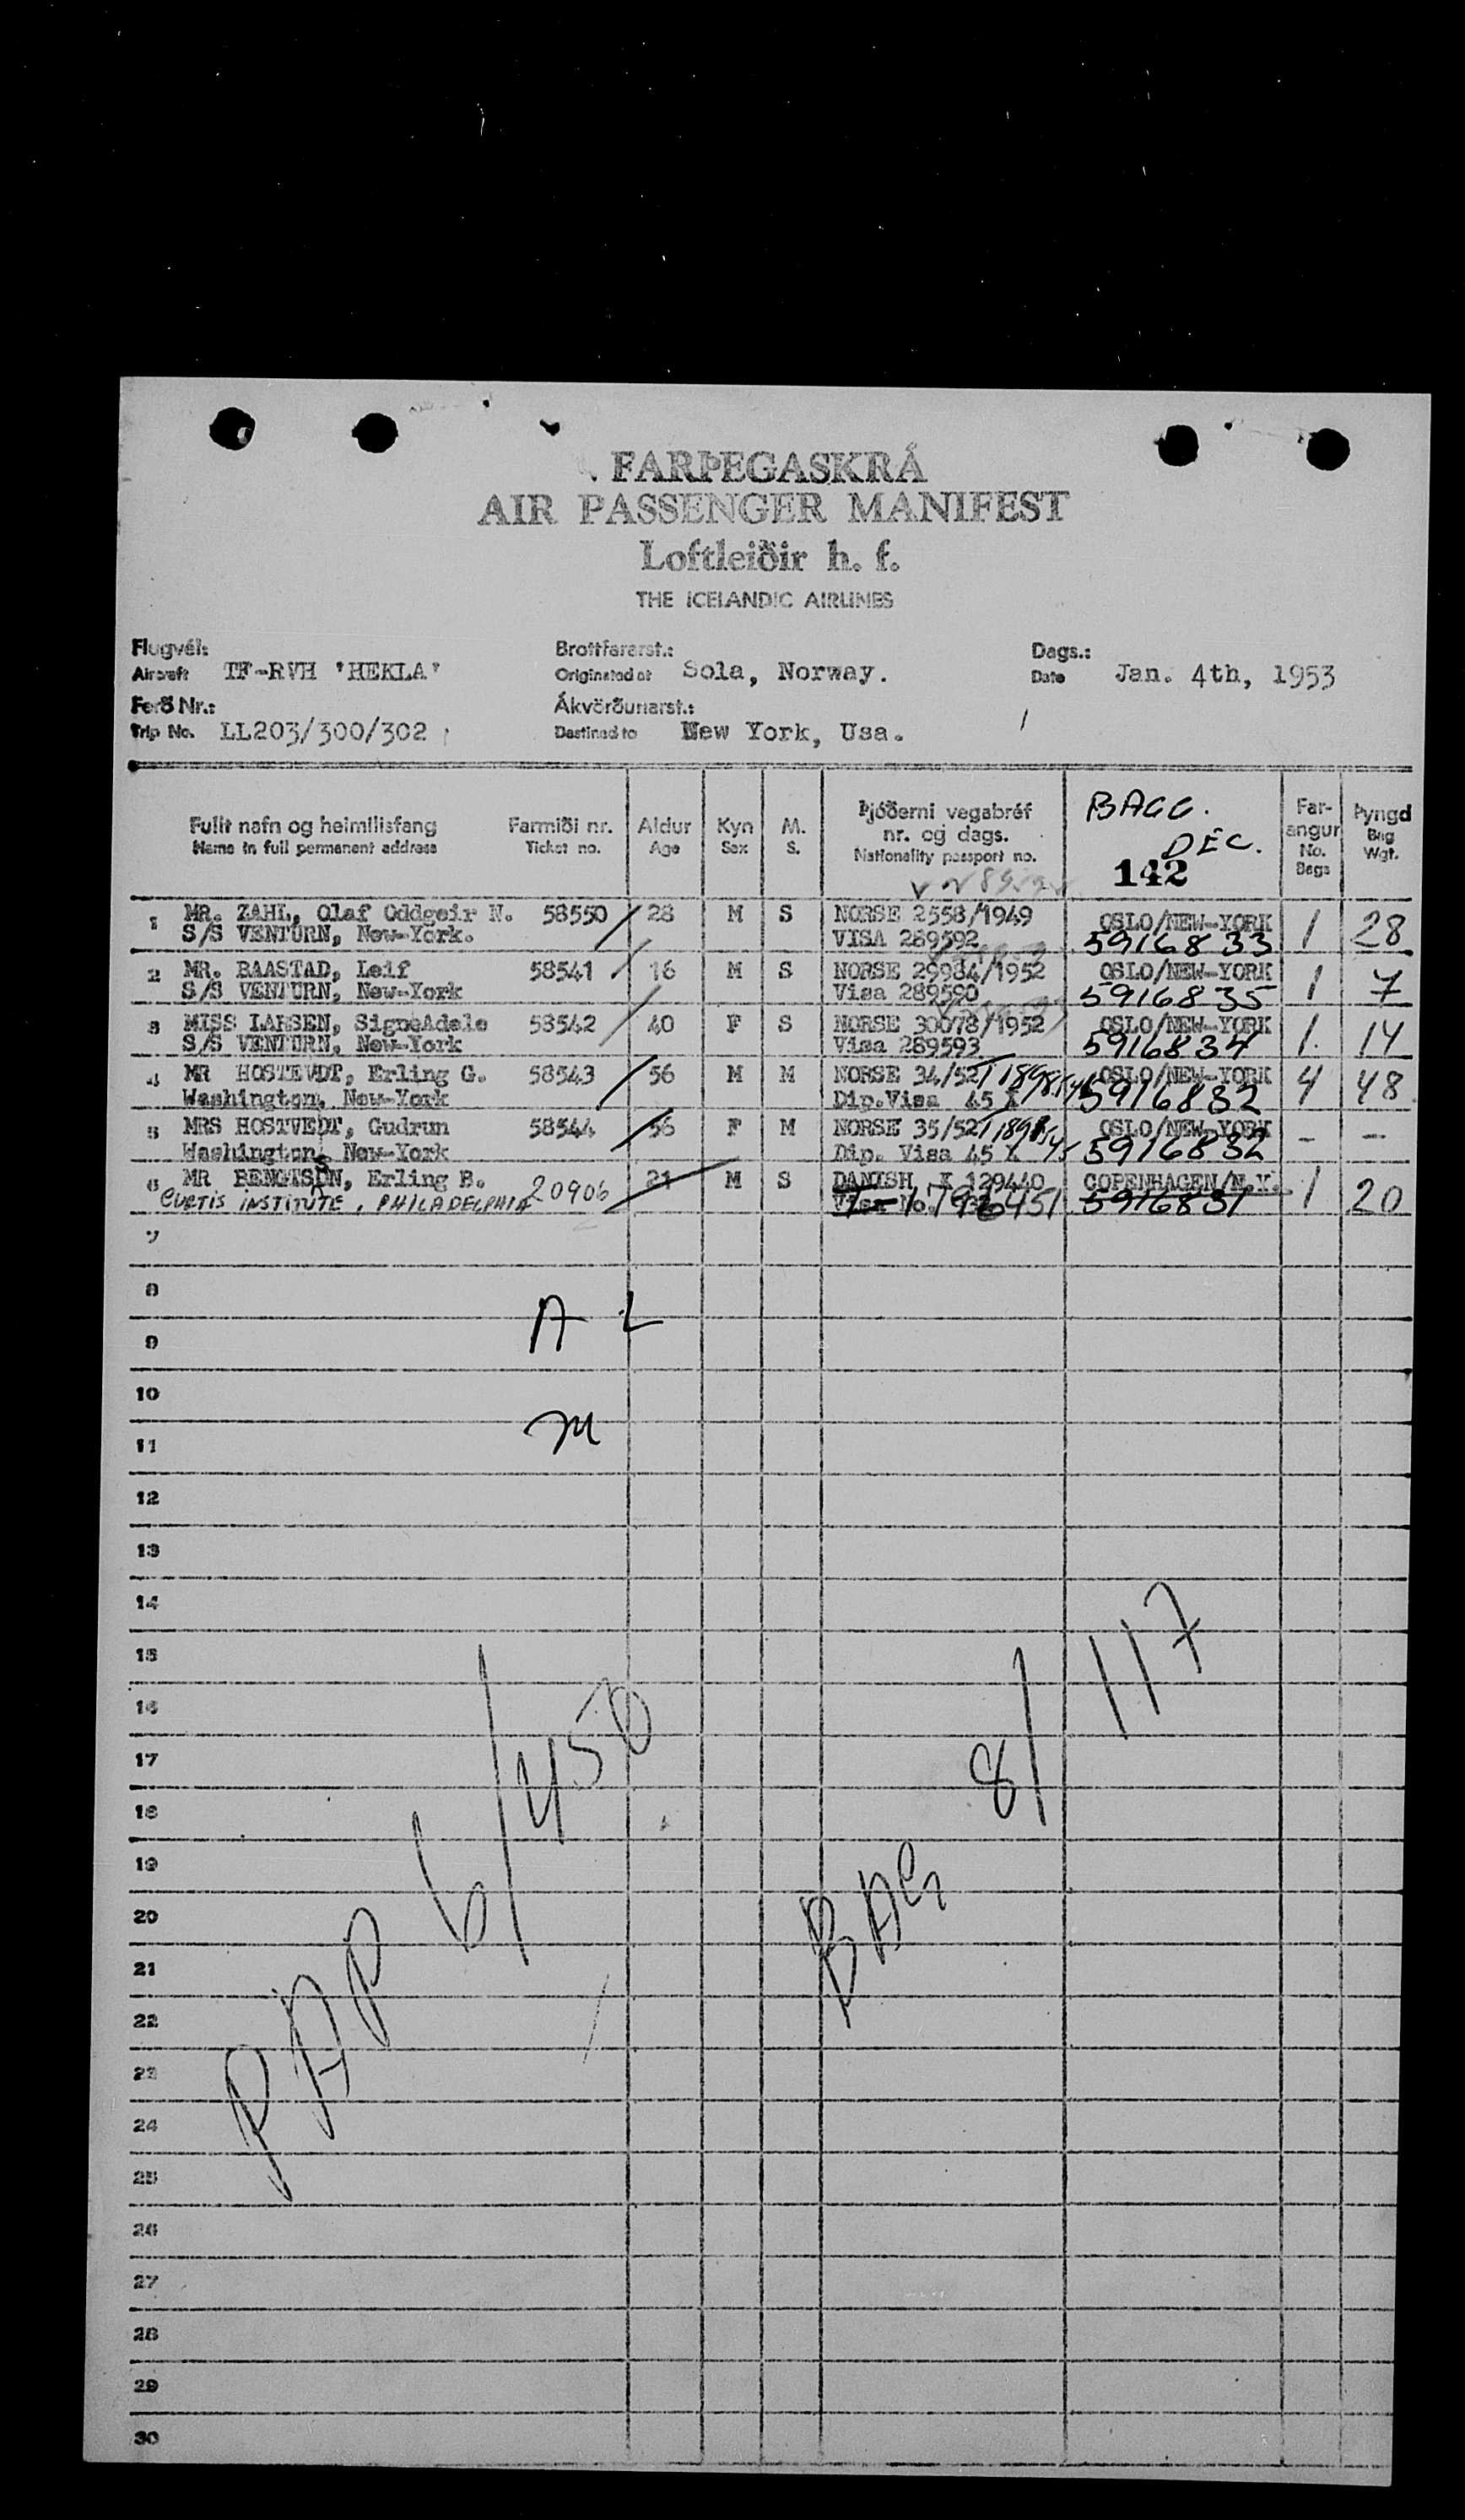 FARÞEGASKRÁ
AIR PASSENGER MANIFEST
Loftleiðir h. f.
THE ICELANDIC AIRLINES
Flugvél: Brottfararst.: Dags.:
Aircraft TF-RVH 'HEKLA' Originated at Sola, Norway. Date Jan. 4th, 1953
Ferð Nr.: Ákvörðunarst.:
Trip No. LL203/300/302 Destined to New York, Usa.
Fullt nafn og heimilisfang Farmiði nr. Aldur Kyn M. Þjóðerni vegabréf nr. og dags. BAGG. DEC. Far-angur Þyngd
Name in full permanent address Ticket no. Age Sex S. Nationality passport no. 142 No. Bags Bag Wgt.
1 MR. ZAHL, Olaf Oddgeir N. 58550 28 M S NORSE 2558/1949 OSLO/NEW-YORK 1 28
S/S VENTURN, New-York. VISA 289592 5916833
2 MR. BAASTAD, Leif 58541 16 M S NORSE 29984/1952 OSLO/NEW-YORK 1 7
S/S VENTURN, New-York Visa 289590 5916835
3 MISS LARSEN, SigneAdele 58542 40 F S NORSE 30078/1952 OSLO/NEW-YORK 1. 14
S/S VENTURN, New-York Visa 289593 5916834
4 MR HOSTEVDT, Erling G. 58543 56 M M NORSE 34/52 OSLO/NEW-YORK 4 48
Washington, New-York Dip.Visa 45 X 5916832
5 MRS HOSTVEDT, Gudrun 58544 56 F M NORSE 35/52 OSLO/NEW-YORK - --
Washington, New-York Dip. Visa 45 X 5916832
6 MR BENGTSON, Erling B. 20906 21 M S DANISH K 129440 COPENHAGEN/N.Y. 1 20
CURTIS INSTITUTE, PHILADELPHIA 5916831
7
8
A L
9
10
M
11
12
13
14
15
16
17
18
19
20
21
22
23
24
25
26
27
28
29
30
PAP 6/450
BAG 8/117